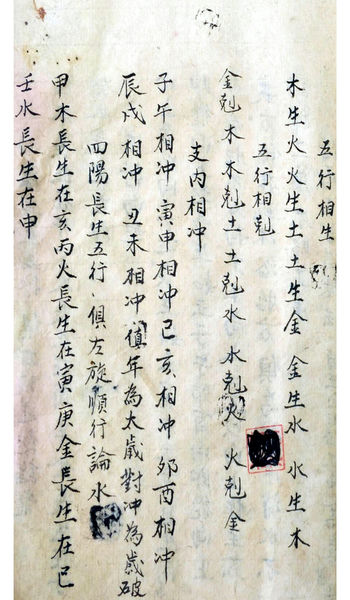 五行相生
木生火火生土土生金金生水水生木
五行相剋
金剋木木剋土土剋水水剋火火剋金
支内相冲
子午相冲寅申相冲巳亥相冲卯酉相冲
辰戌相冲丑未相冲值年為太歲對冲為歲破
四陽長生五行、俱左旋順行論水
甲木長生在亥丙火長生在寅庚金長生在巳
壬水長生在申